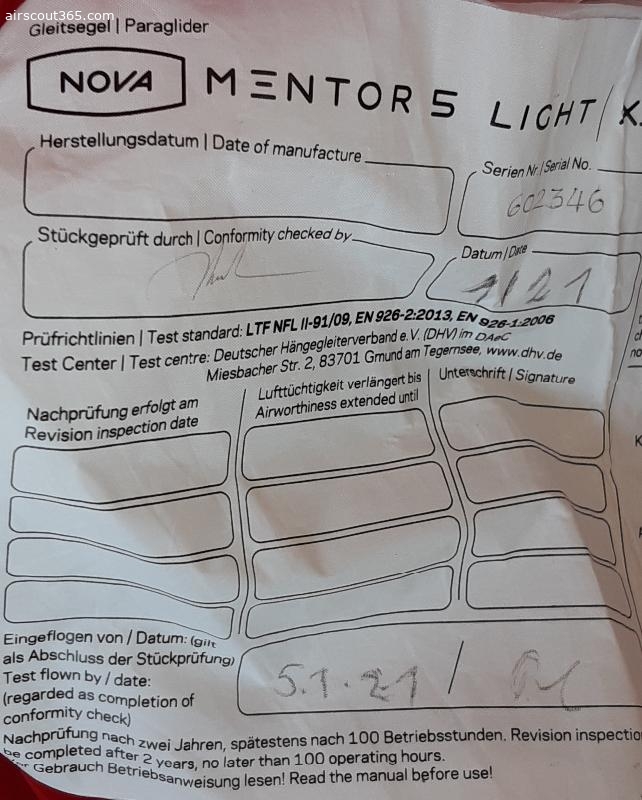 airscout365.com
Gleitsegel | Paraglider
NOVA MENTOR 5 LIGHT
Herstellungsdatum | Date of manufacture
Serien Nr | Serial No.
602346
Stückgeprüft durch | Conformity checked by
Datum | Date
1/21
Prüfrichtlinien | Test standard: LTF NFL II-91/09, EN 926-2:2013, EN 926-1:2006
Test Center | Test centre: Deutscher Hängegleiterverband e.V. (DHV) im DAeC
Miesbacher Str. 2, 83701 Gmund am Tegernsee, www.dhv.de
Nachprüfung erfolgt am
Revision inspection date
Lufttüchtigkeit verlängert bis
Airworthiness extended until
Unterschrift | Signature
Eingeflogen von / Datum: (gilt
als Abschluss der Stückprüfung)
Test flown by / date:
(regarded as completion of
conformity check)
5.1.21 /
Nachprüfung nach zwei Jahren, spätestens nach 100 Betriebsstunden. Revision inspectio
be completed after 2 years, no later than 100 operating hours.
Gebrauch Betriebsanweisung lesen! Read the manual before use!